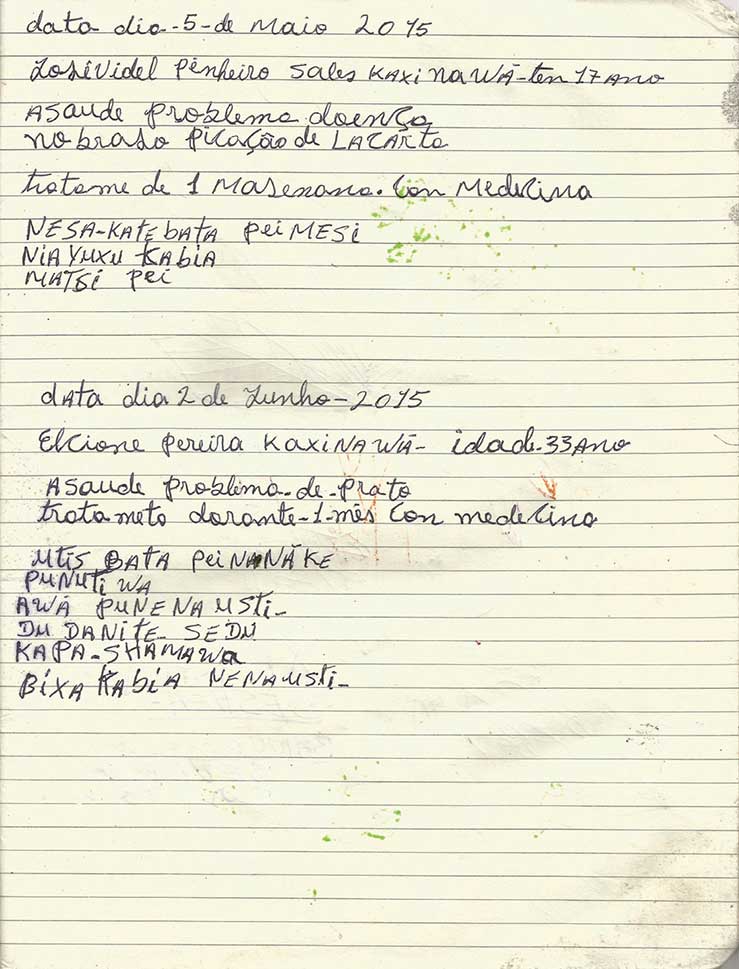 data dia-5-de Maio 2015
Josévidel Penheiro Sales KAXINAWÁ-ten 17 ANO
A saude Problema doença
no braso Picação de LACARTA
tratame de 1 MASEMANA. Con Medecina
NESA-KATEBATA PEI MESI
NIA YUXU KABIA
MATSI PEI
data dia 2 de Junho-2015
Elcione Pereira KAXINAWÁ- idade-33 ANO
A saude Problema-de-Prato
tratameto dorante-1-mês Con medecina
BATA PEI NANÃKE
PUNUTI WA
AWÁ PUNENAUSTI-
DU DANITE SEDU
KAPA-SHAMAWA
BIXA KABIA NENAUSTI-